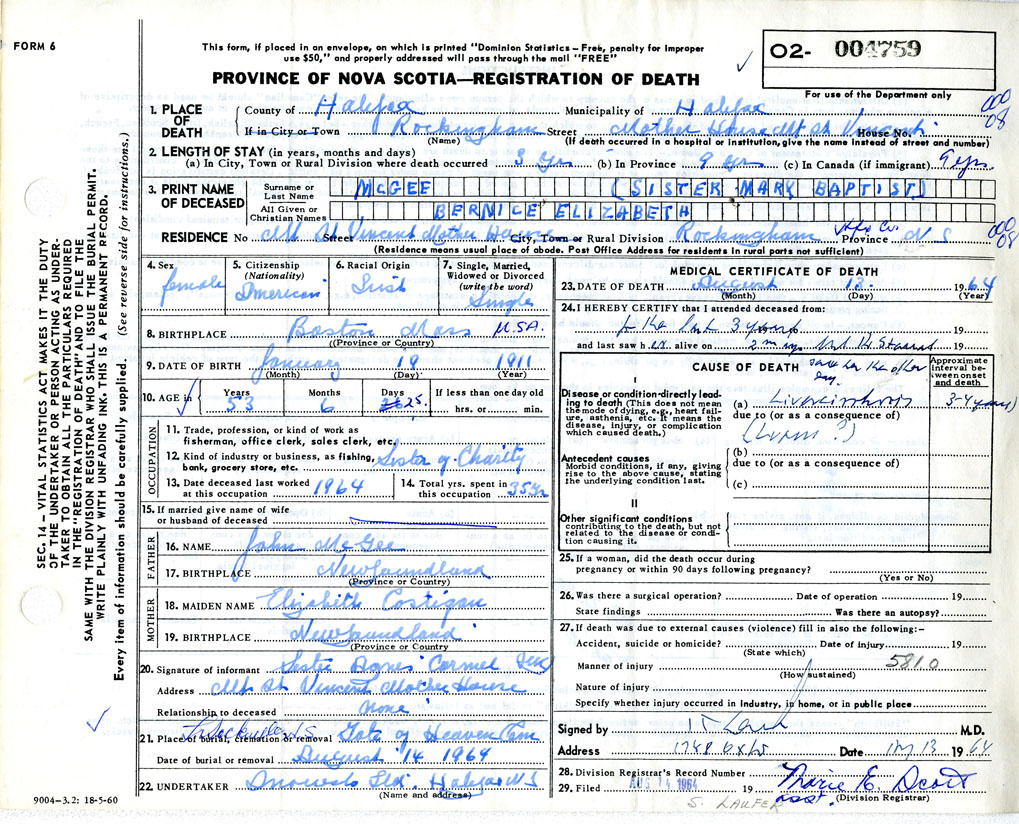 FORM 6
This form, if placed in an envelope, on which is printed "Dominion Statistics—Free, penalty for improper
use $50," and properly addressed will pass through the mail "FREE"
PROVINCE OF NOVA SCOTIA—REGISTRATION OF DEATH
02- 004759
For use of the Department only
1. PLACE OF DEATH County of Halifax Municipality of Halifax 000 08
If in City or Town Rockingham Street Mother House Mt St Vincent House No.
(Name) (If death occurred in a hospital or institution, give the name instead of street and number)
2. LENGTH OF STAY (in years, months and days)
(a) In City, Town or Rural Division where death occurred 3 Yrs (b) In Province 9 yrs (c) In Canada (if immigrant) 9 yrs
3. PRINT NAME OF DECEASED Surname or Last Name McGEE (SISTER MARY BAPTIST)
All Given or Christian Names BERNICE ELIZABETH
RESIDENCE No Mt St Vincent Mother House Street City, Town or Rural Division Rockingham Hfx Co. Province N S 000 08
(Residence means usual place of abode. Post Office Address for residents in rural parts not sufficient)
4. Sex female
5. Citizenship (Nationality) American
6. Racial Origin Irish
7. Single, Married, Widowed or Divorced (write the word) Single
8. BIRTHPLACE Boston Mass U.S.A.
(Province or Country)
9. DATE OF BIRTH January 19 1911
(Month) (Day) (Year)
10. AGE in Years 53 Months 6 Days 25 If less than one day old hrs. or min.
OCCUPATION
11. Trade, profession, or kind of work as fisherman, office clerk, sales clerk, etc.
12. Kind of industry or business, as fishing, bank, grocery store, etc. Sister of Charity
13. Date deceased last worked at this occupation 1964
14. Total yrs. spent in this occupation 35 Yrs
15. If married give name of wife or husband of deceased
FATHER
16. NAME John McGee
17. BIRTHPLACE Newfoundland
(Province or Country)
MOTHER
18. MAIDEN NAME Elizabeth Costigan
19. BIRTHPLACE Newfoundland
(Province or Country
20. Signature of informant Sister Agnes Carmel
Address Mt St Vincent Mother House
Relationship to deceased None
Lr Sackville N.S.
21. Place of burial, cremation or removal Gate of Heaven Cem
Date of burial or removal August 14 1964
22. UNDERTAKER Snows Ltd. Halifax N S
(Name and address)
9004-3.2: 18-5-60
MEDICAL CERTIFICATE OF DEATH
23. DATE OF DEATH August 13 1964
(Month) (Day) (Year)
24. I HEREBY CERTIFY that I attended deceased from:
for the last 3 years 19
and last saw h er alive on 19
CAUSE OF DEATH
Approximate interval between onset and death
I
Disease or condition directly leading to death (This does not mean the mode of dying, e.g., heart failure, asthenia, etc. It means the disease, injury, or complication which caused death.)
(a) Liver cirrhosis 3-4 years
due to (or as a consequence of)
Antecedent causes
Morbid conditions, if any, giving rise to the above cause, stating the underlying condition last.
(b)
due to (or as a consequence of)
(c)
II
Other significant conditions contributing to the death, but not related to the disease or condition causing it.
25. If a woman, did the death occur during pregnancy or within 90 days following pregnancy?
(Yes or No)
26. Was there a surgical operation? Date of operation 19
State findings Was there an autopsy?
27. If death was due to external causes (violence) fill in also the following:—
Accident, suicide or homicide? Date of injury 19
(State which)
Manner of injury 5810
(How sustained)
Nature of injury
Specify whether injury occurred in industry, in home, or in public place
Signed by M.D.
Address Date 13 1964
28. Division Registrar's Record Number
29. Filed AUG 14 1964 19 Marie E. Scott
asst. (Division Registrar)
S. LAUFER
SEC. 14—VITAL STATISTICS ACT MAKES IT THE DUTY
OF THE UNDERTAKER OR PERSON ACTING AS UNDERTAKER TO OBTAIN ALL THE PARTICULARS REQUIRED
IN THE "REGISTRATION OF DEATH" AND TO FILE THE
SAME WITH THE DIVISION REGISTRAR WHO SHALL ISSUE THE BURIAL PERMIT.
WRITE PLAINLY WITH UNFADING INK. THIS IS A PERMANENT RECORD.
Every item of information should be carefully supplied. (See reverse side for instructions.)